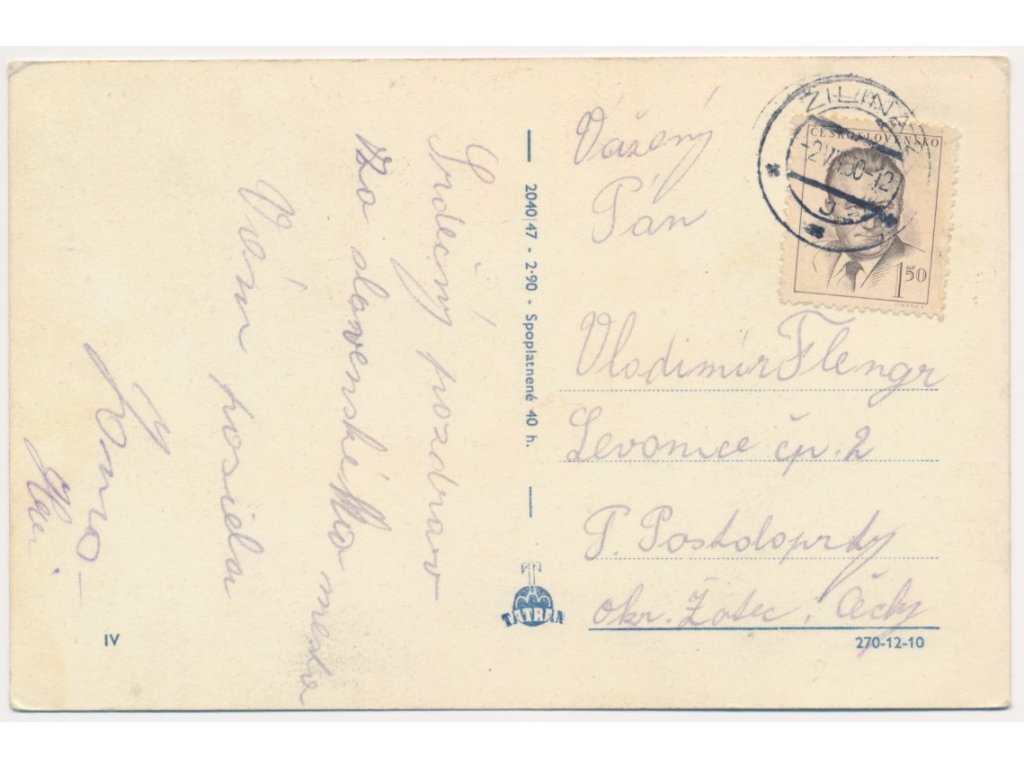 Srdečný pozdrav
zo slovenského mesta
Vám posiela
Vážený
Pán
Vladimír Flengr
Levonice čp. 2
P. Postoloprty
okr. Žatec, Čechy
ŽILINA
ČESKOSLOVENSKO
1 50
2040/47 - 2·90 - Spoplatnené 40 h.
TATRAN
IV
270-12-10